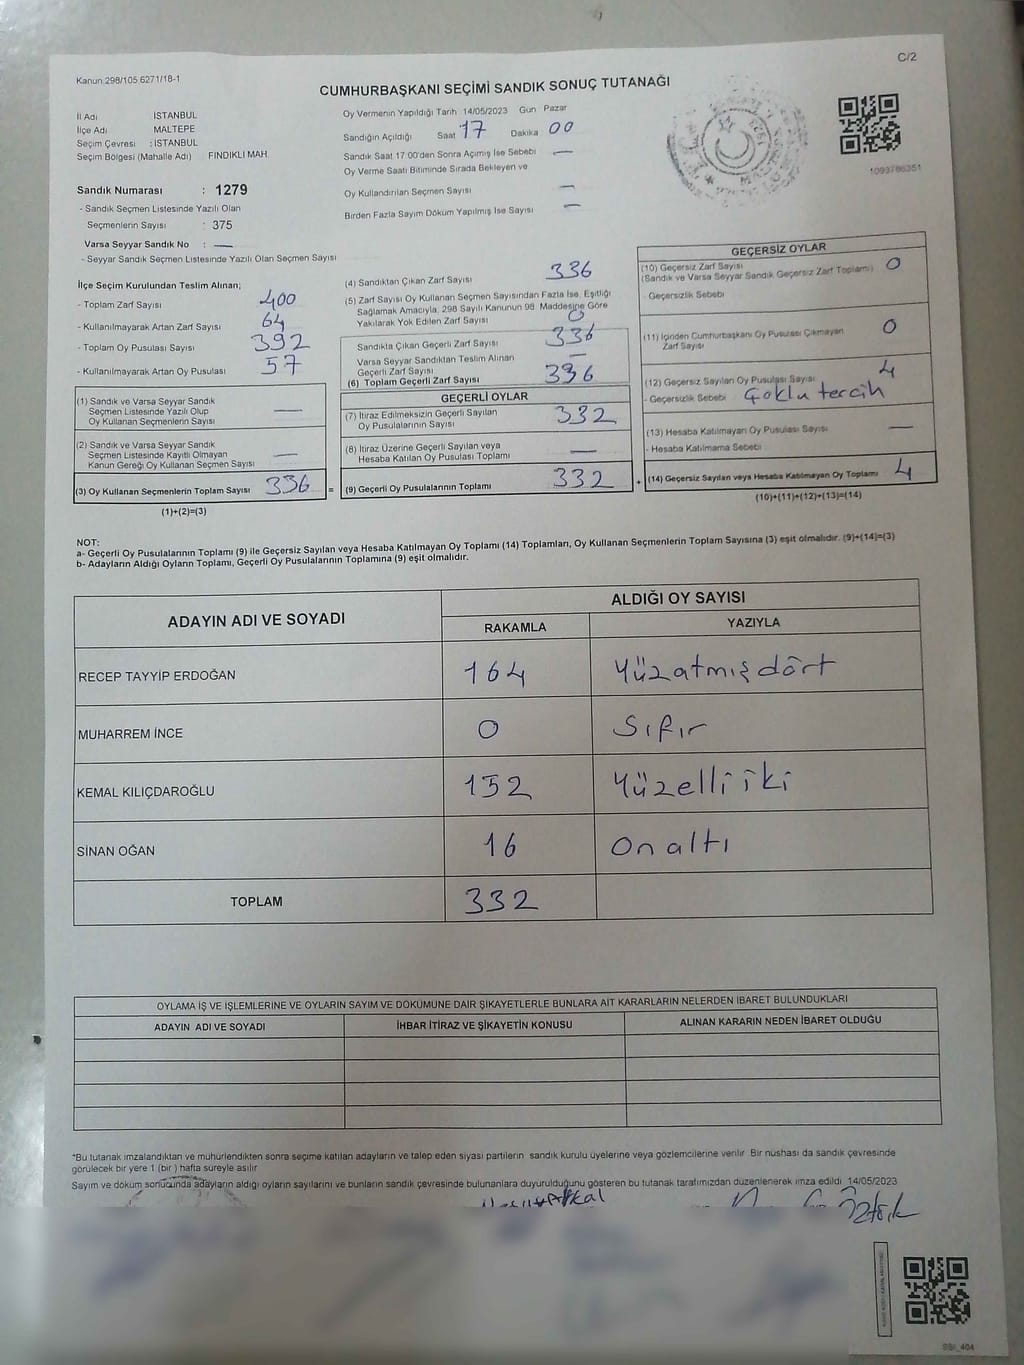 Kanun 298/105 6271/18-1
C/2
CUMHURBAŞKANI SEÇİMİ SANDIK SONUÇ TUTANAĞI
İl Adı İSTANBUL
İlçe Adı MALTEPE
Seçim Çevresi : İSTANBUL
Seçim Bölgesi (Mahalle Adı) FINDIKLI MAH
Oy Vermenin Yapıldığı Tarih 14/05/2023 Gün Pazar
Sandığın Açıldığı Saat 17 Dakika 00
Sandık Saat 17 00'den Sonra Açılmış İse Sebebi —
Oy Verme Saati Bitiminde Sırada Bekleyen ve
Oy Kullandırılan Seçmen Sayısı —
Birden Fazla Sayım Döküm Yapılmış İse Sayısı —
1093786351
Sandık Numarası : 1279
- Sandık Seçmen Listesinde Yazılı Olan
Seçmenlerin Sayısı : 375
Varsa Seyyar Sandık No : —
- Seyyar Sandık Seçmen Listesinde Yazılı Olan Seçmen Sayısı
İlçe Seçim Kurulundan Teslim Alınan;
- Toplam Zarf Sayısı 400
- Kullanılmayarak Artan Zarf Sayısı 64
- Toplam Oy Pusulası Sayısı 392
- Kullanılmayarak Artan Oy Pusulası 57
(1) Sandık ve Varsa Seyyar Sandık
Seçmen Listesinde Yazılı Olup
Oy Kullanan Seçmenlerin Sayısı —
(2) Sandık ve Varsa Seyyar Sandık
Seçmen Listesinde Kayıtlı Olmayan
Kanun Gereği Oy Kullanan Seçmen Sayısı —
(3) Oy Kullanan Seçmenlerin Toplam Sayısı 336 =
(1)+(2)=(3)
(4) Sandıktan Çıkan Zarf Sayısı 336
(5) Zarf Sayısı Oy Kullanan Seçmen Sayısından Fazla İse, Eşitliği
Sağlamak Amacıyla, 298 Sayılı Kanunun 98 Maddesine Göre
Yakılarak Yok Edilen Zarf Sayısı 0
Sandıkta Çıkan Geçerli Zarf Sayısı 336
Varsa Seyyar Sandıktan Teslim Alınan
Geçerli Zarf Sayısı —
(6) Toplam Geçerli Zarf Sayısı 336
GEÇERLİ OYLAR
(7) İtiraz Edilmeksizin Geçerli Sayılan
Oy Pusulalarının Sayısı 332
(8) İtiraz Üzerine Geçerli Sayılan veya
Hesaba Katılan Oy Pusulası Toplamı —
(9) Geçerli Oy Pusulalarının Toplamı 332 +
GEÇERSİZ OYLAR
(10) Geçersiz Zarf Sayısı
(Sandık ve Varsa Seyyar Sandık Geçersiz Zarf Toplamı) 0
- Geçersizlik Sebebi
(11) İçinden Cumhurbaşkanı Oy Pusulası Çıkmayan
Zarf Sayısı 0
(12) Geçersiz Sayılan Oy Pusulası Sayısı 4
- Geçersizlik Sebebi Çoklu tercih
(13) Hesaba Katılmayan Oy Pusulası Sayısı —
- Hesaba Katılmama Sebebi
(14) Geçersiz Sayılan veya Hesaba Katılmayan Oy Toplamı 4
(10)+(11)+(12)+(13)=(14)
NOT:
a- Geçerli Oy Pusulalarının Toplamı (9) ile Geçersiz Sayılan veya Hesaba Katılmayan Oy Toplamı (14) Toplamları, Oy Kullanan Seçmenlerin Toplam Sayısına (3) eşit olmalıdır. (9)+(14)=(3)
b- Adayların Aldığı Oyların Toplamı, Geçerli Oy Pusulalarının Toplamına (9) eşit olmalıdır.
ADAYIN ADI VE SOYADI
ALDIĞI OY SAYISI
RAKAMLA YAZIYLA
RECEP TAYYİP ERDOĞAN 164 Yüzatmışdört
MUHARREM İNCE 0 Sıfır
KEMAL KILIÇDAROĞLU 152 Yüzelliiki
SİNAN OĞAN 16 Onaltı
TOPLAM 332
OYLAMA İŞ VE İŞLEMLERİNE VE OYLARIN SAYIM VE DÖKÜMÜNE DAİR ŞİKAYETLERLE BUNLARA AİT KARARLARIN NELERDEN İBARET BULUNDUKLARI
ADAYIN ADI VE SOYADI İHBAR İTİRAZ VE ŞİKAYETİN KONUSU ALINAN KARARIN NEDEN İBARET OLDUĞU
*Bu tutanak imzalandıktan ve mühürlendikten sonra seçime katılan adayların ve talep eden siyasi partilerin sandık kurulu üyelerine veya gözlemcilerine verilir Bir nüshası da sandık çevresinde
görülecek bir yere 1 (bir ) hafta süreyle asılır
Sayım ve döküm sonucunda adayların aldığı oyların sayılarını ve bunların sandık çevresinde bulunanlara duyurulduğunu gösteren bu tutanak tarafımızdan düzenlenerek imza edildi 14/05/2023
SBI_404